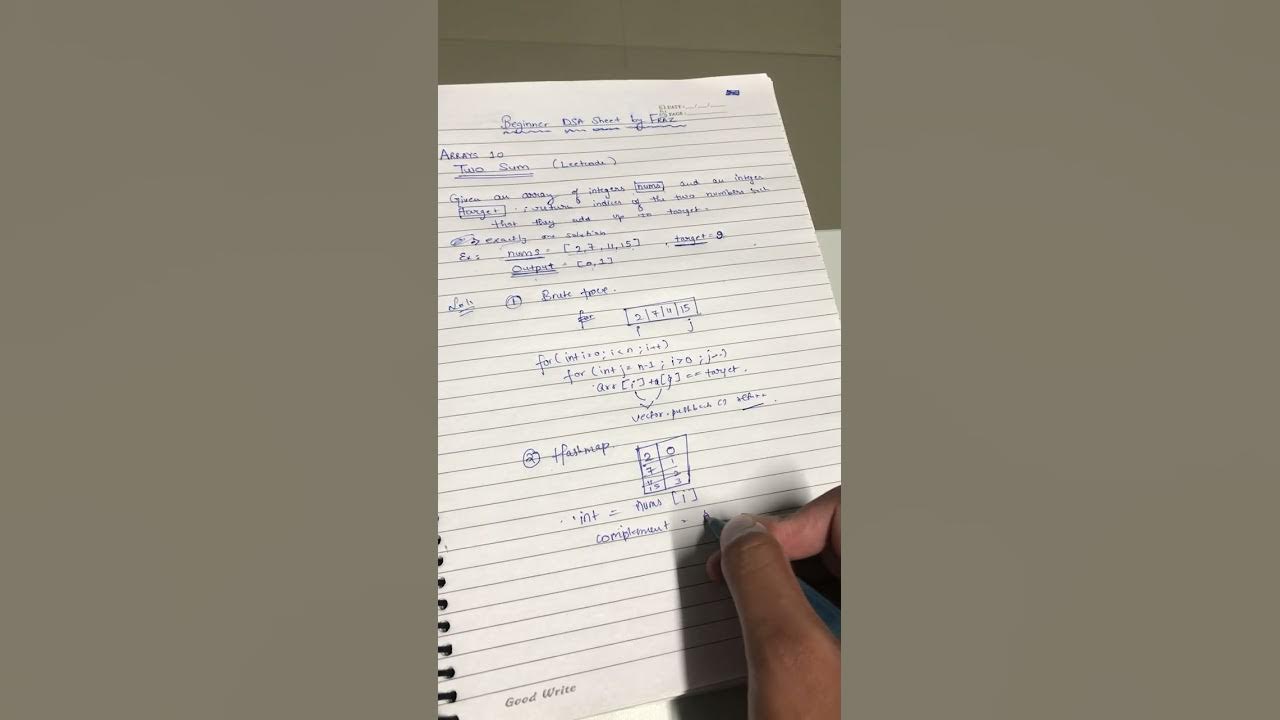 DATE: __/__/__
PAGE:
Beginner DSA Sheet by FRAZ
ARRAYS 10
Two Sum (Leetcode)
Given an array of integers nums and an integer
target, return indices of the two numbers such
that they add up to target.
→ exactly one solution
Ex: nums = [2,7,11,15], target = 9
Output = [0,1]
Soln: ① Brute force.
for 2|7|11|15
i j
for(int i=0; i<n; i++)
for (int j=n-1; i>0; j--)
arr[i]+a[j] == target.
vector.pushback() return
② Hashmap.
2 0
7 1
11 2
15 3
int = nums [i]
complement =
Good Write